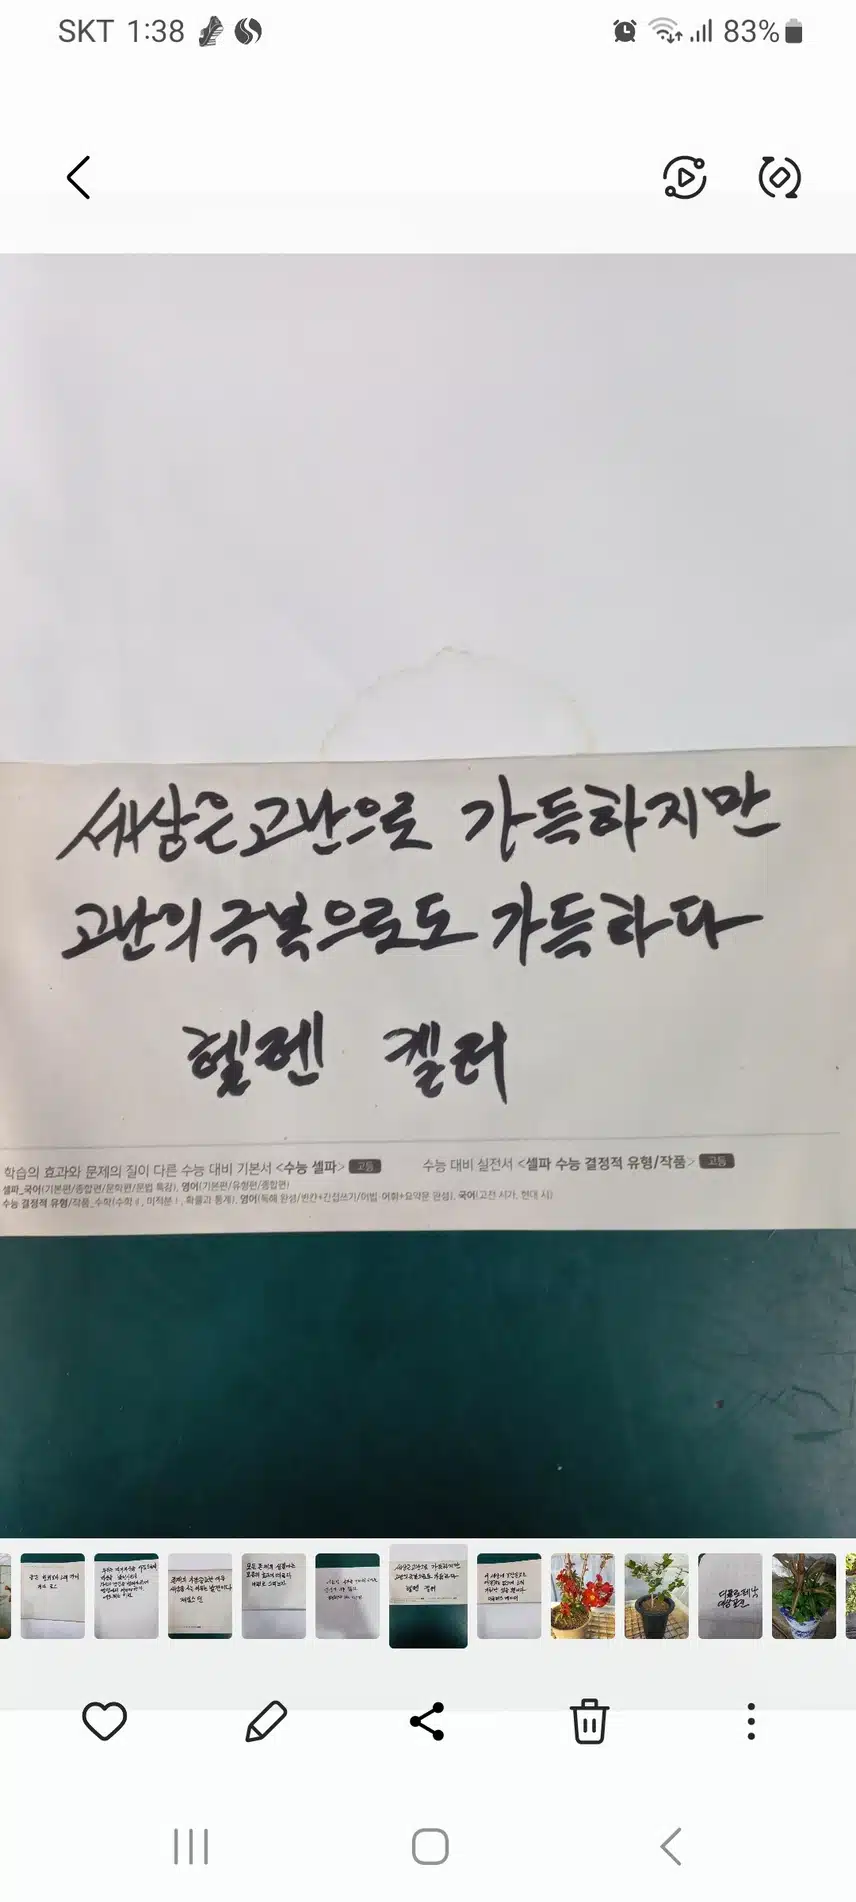 SKT 1:38 83%
세상은 고난으로 가득하지만
고난의 극복으로도 가득하다
헬렌 켈러
학습의 효과와 문제의 질이 다른 수능 대비 기본서 <수능 셀파> 고등 수능 대비 실전서 <셀파 수능 결정적 유형/작품> 고등
셀파_국어(기본편/종합편/문학편/문법 특강), 영어(기본편/유형편/종합편)
수능 결정적 유형/작품_수학(수학Ⅱ, 미적분Ⅰ, 확률과 통계), 영어(독해 완성/빈칸+간접쓰기/어법·어휘+요약문 완성), 국어(고전 시가, 현대 시)